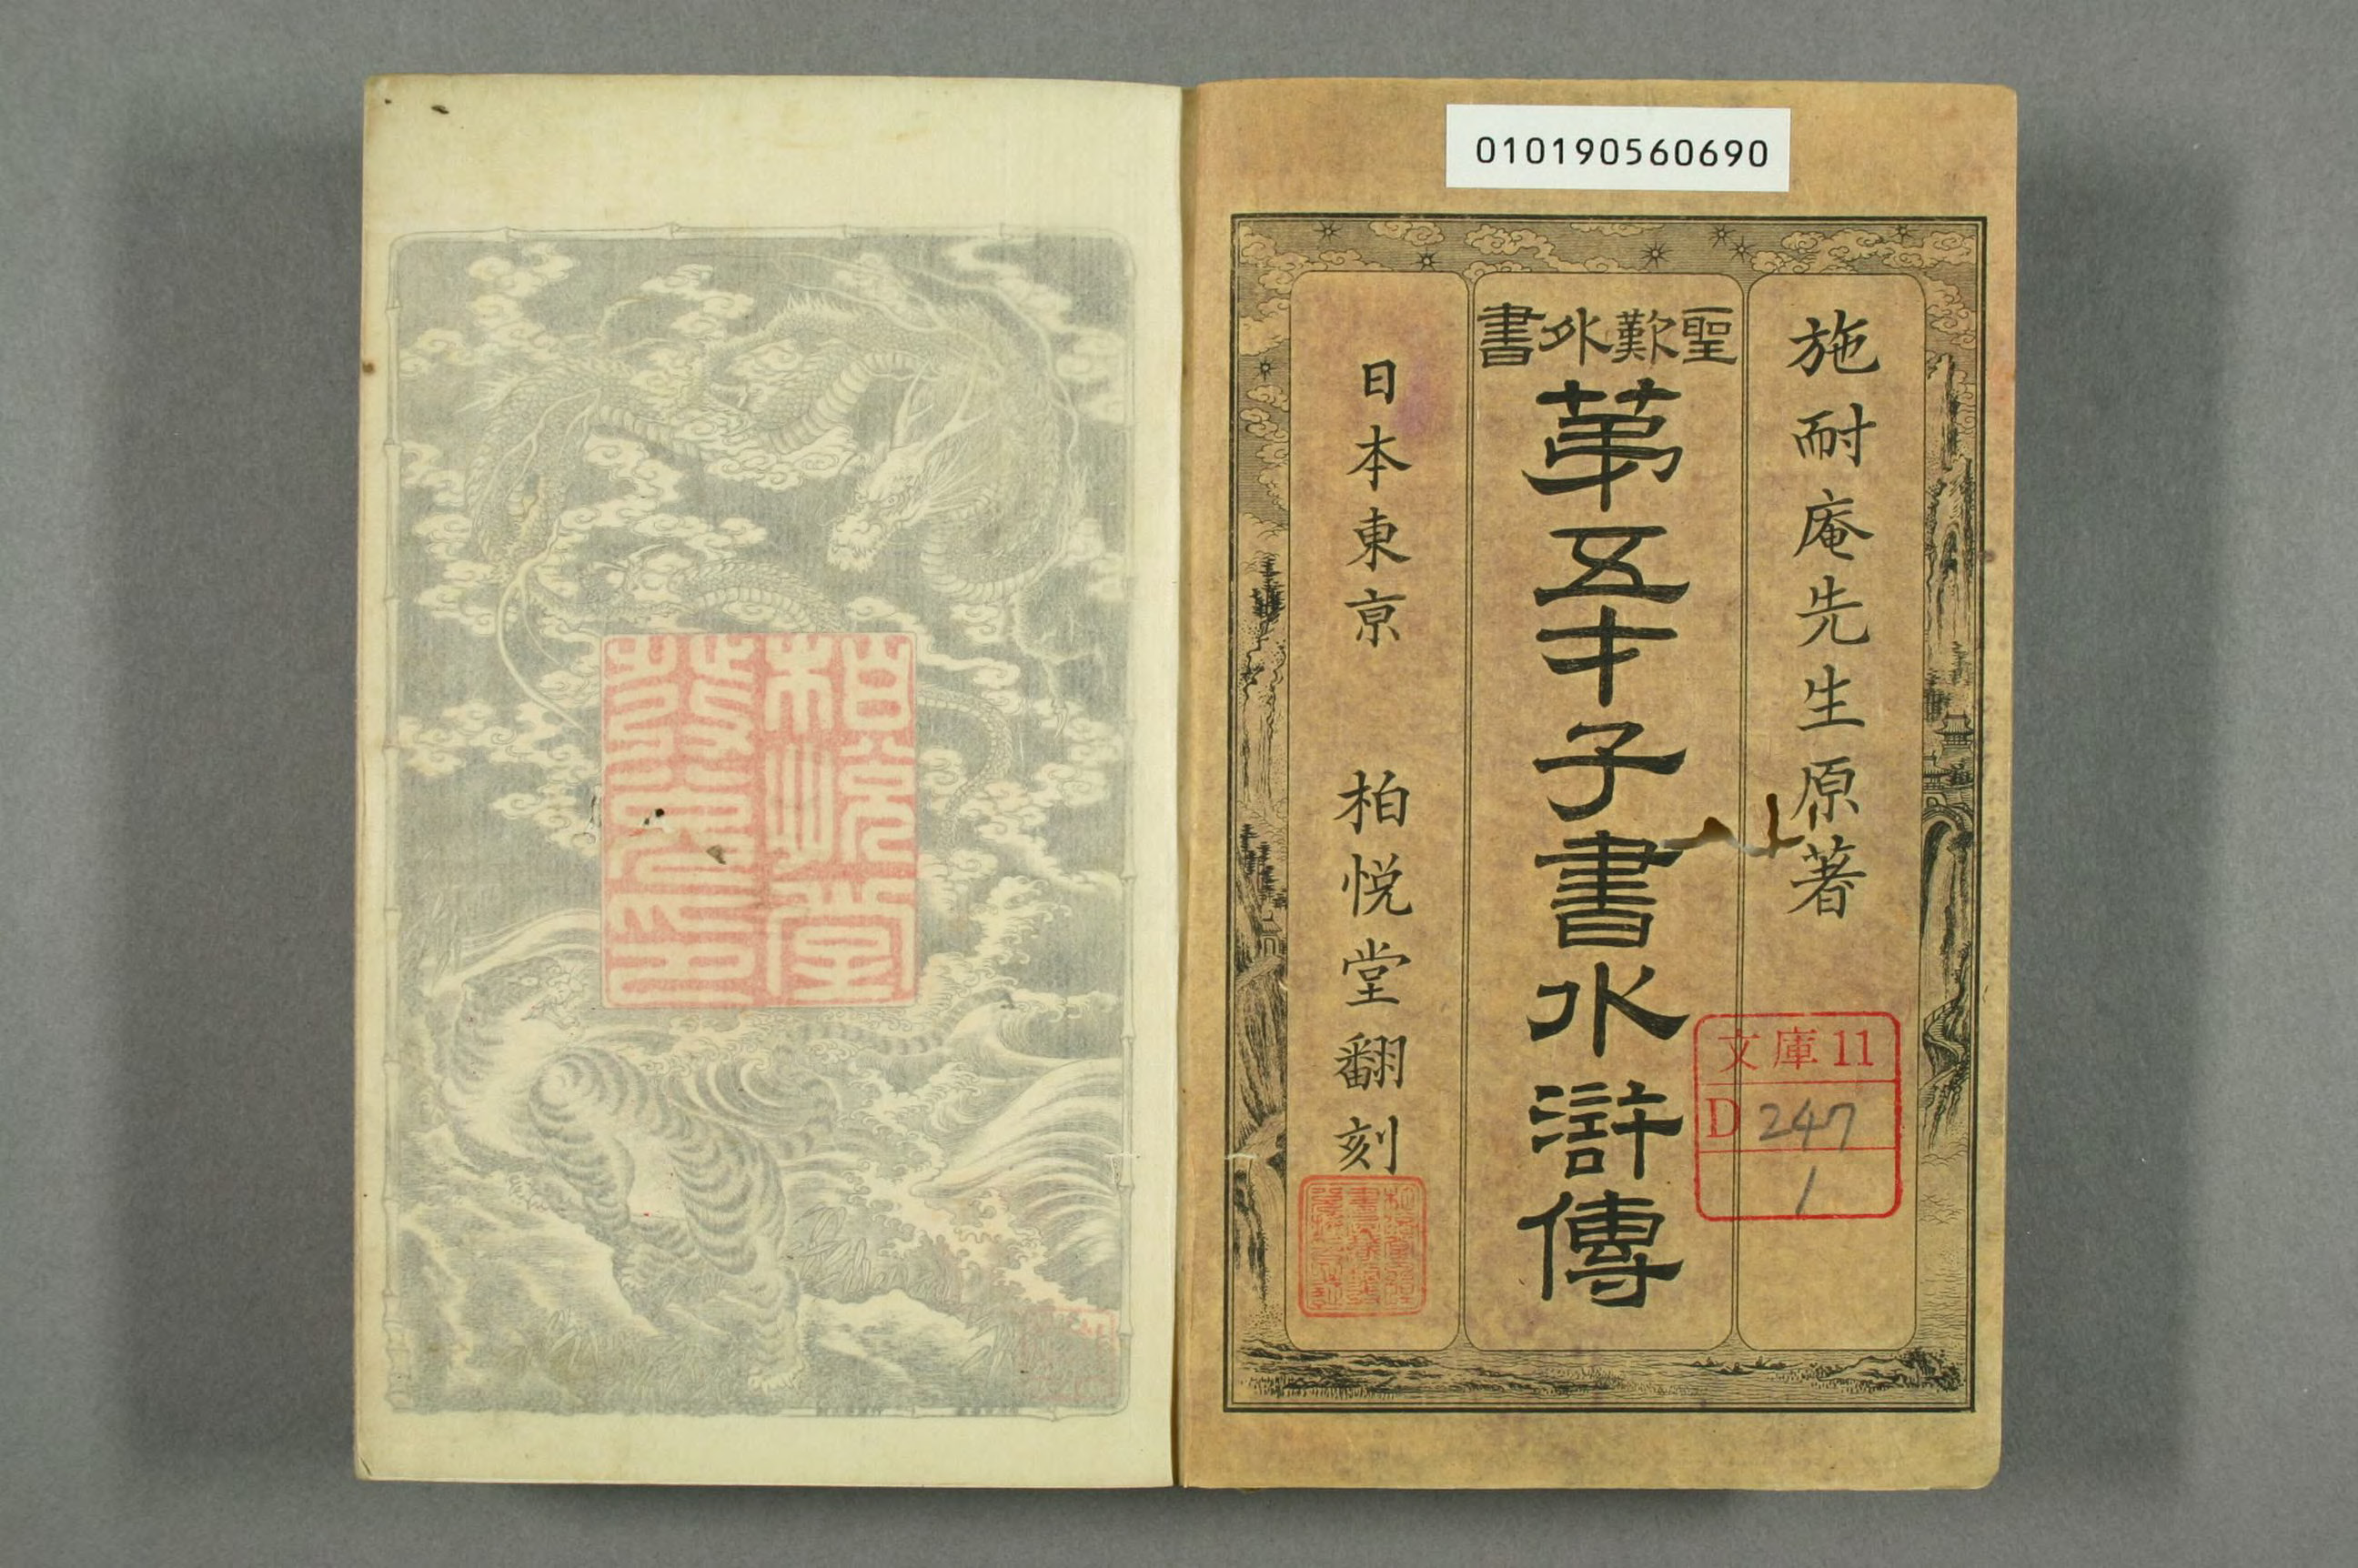 010190560690
施耐庵先生原著
聖歎外書
第五才子書水滸傳
日本東京 柏悦堂翻刻
文庫11
D 247
1
柏悅堂
發兌印